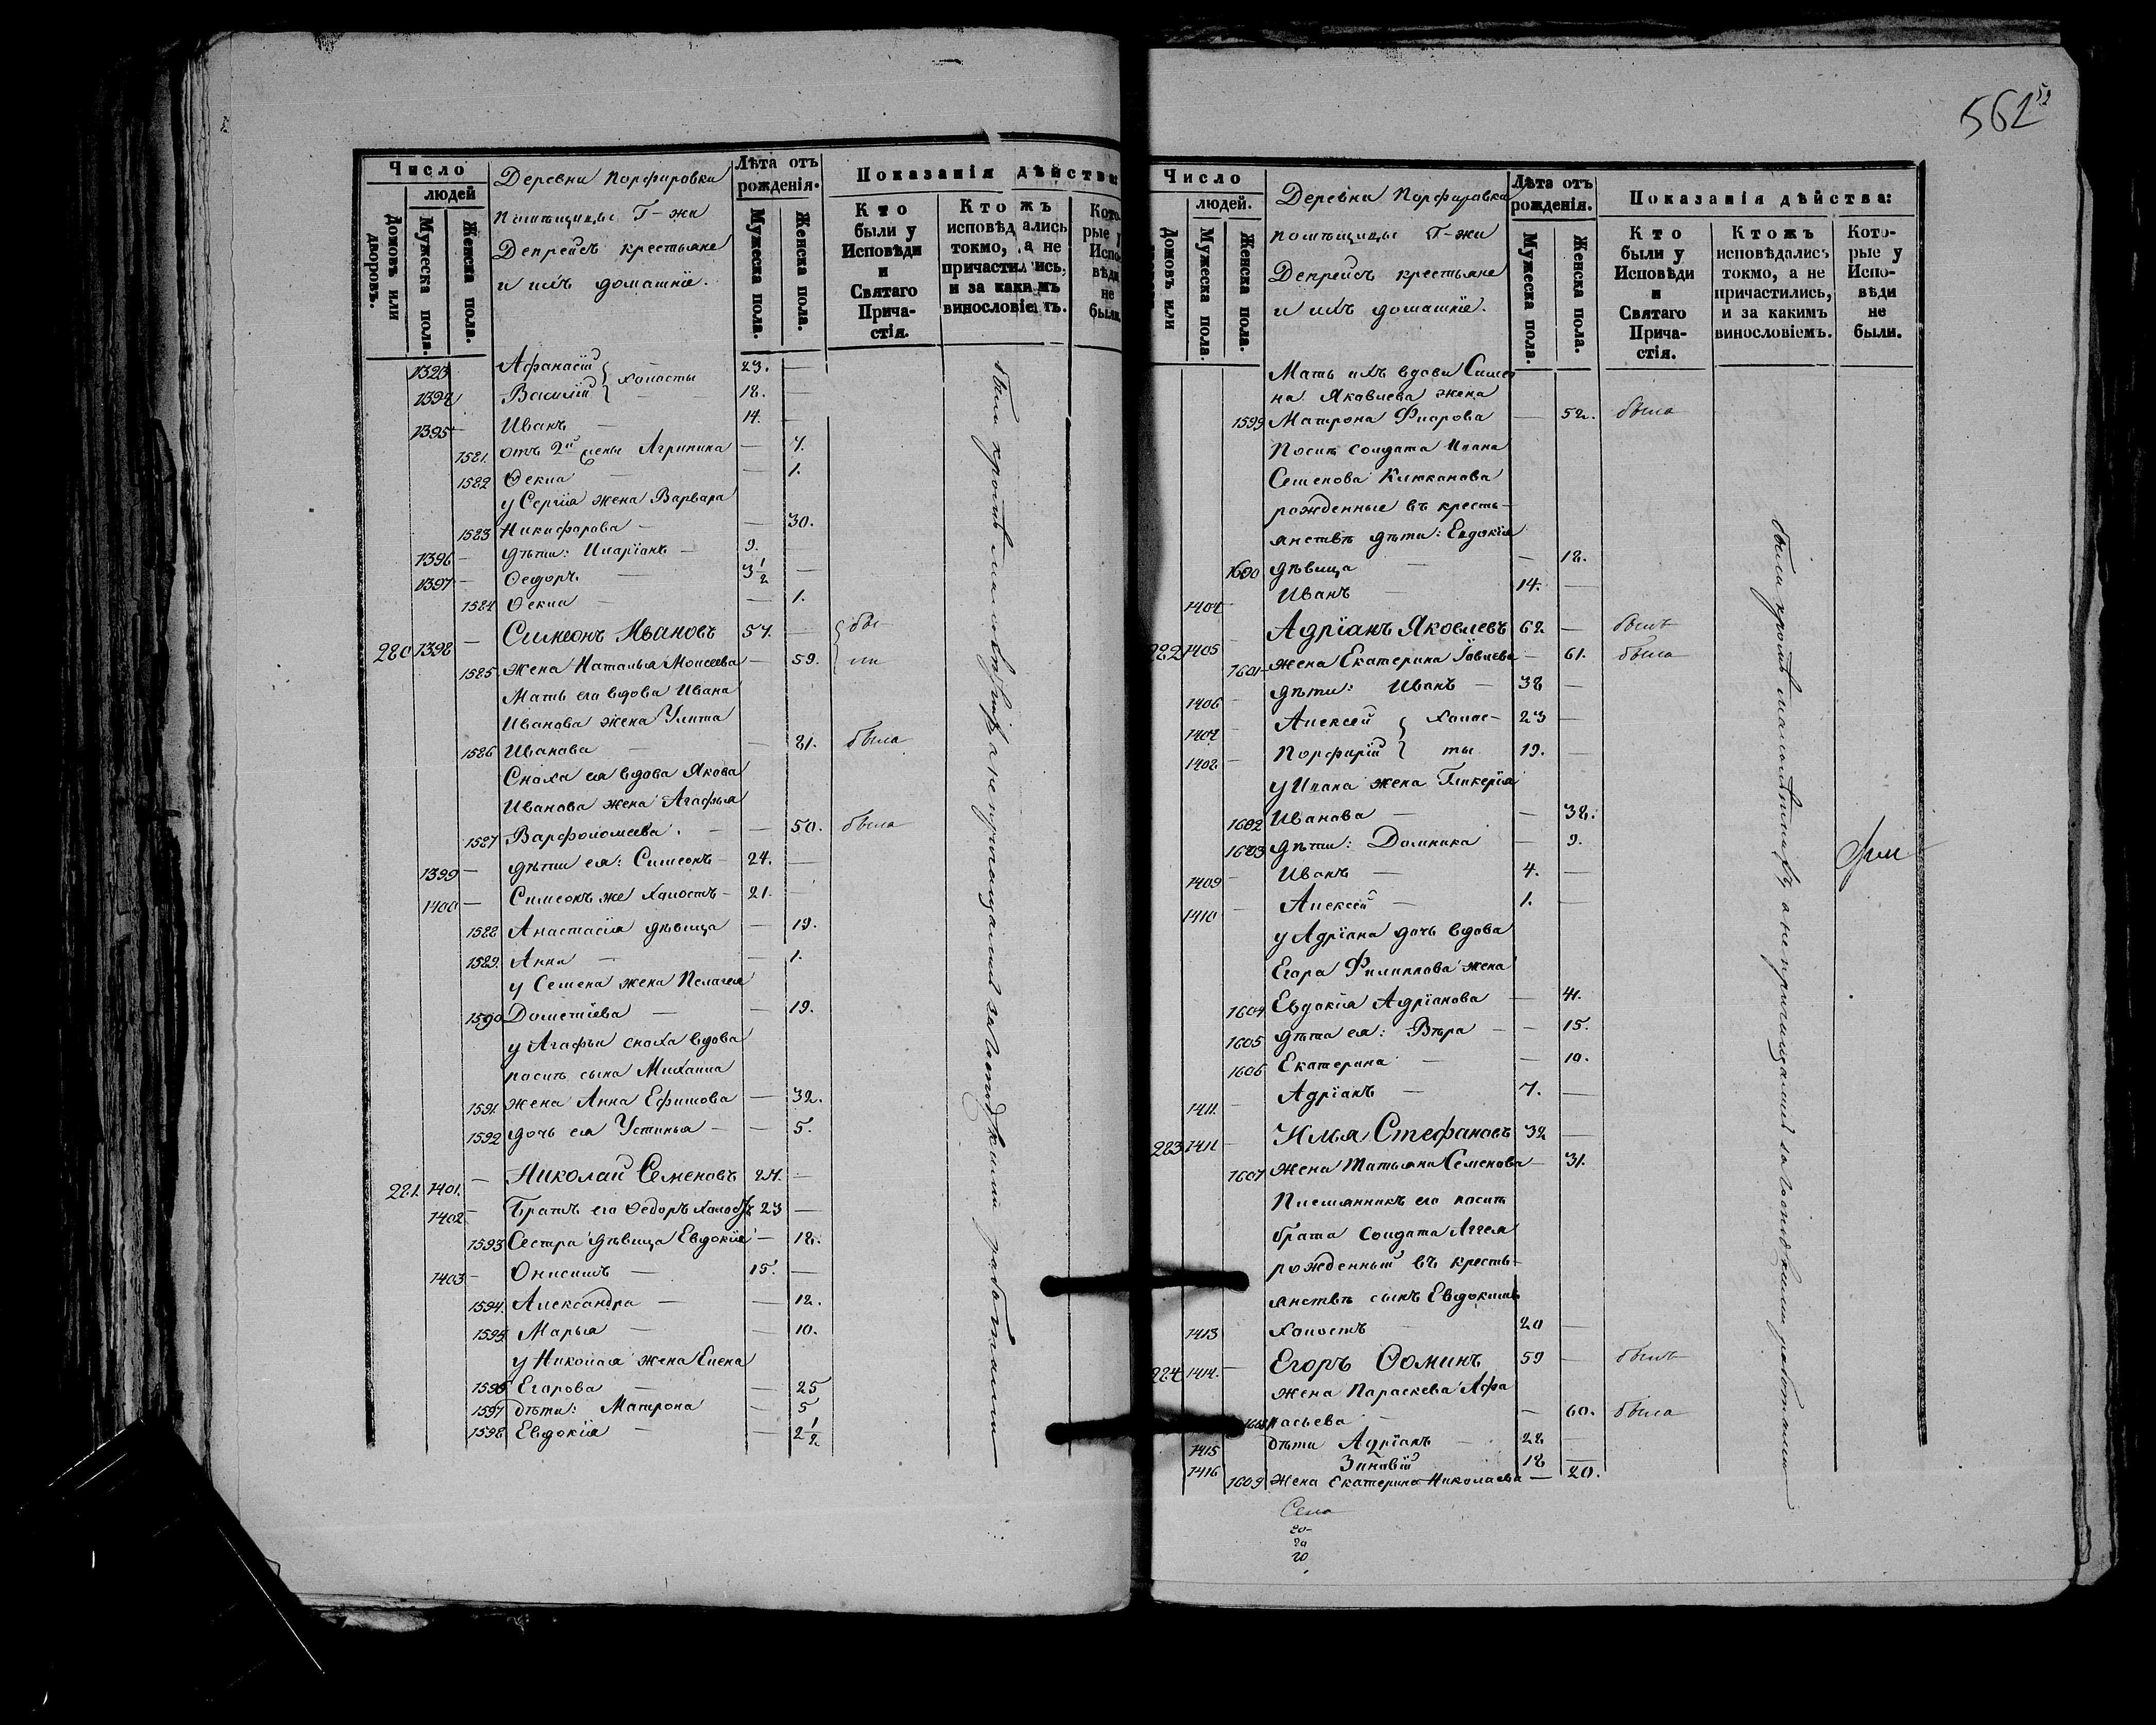 562 52
Число
людей
Домовъ или дворовъ.
Мужеска пола.
Женска пола.
Деревни Порфировки
помѣщицы Г-жи
Депрейсъ крестьяне
и ихъ домашніе.
Лѣта отъ рожденія.
Мужеска пола.
Женска пола.
Показанія дѣйства:
Кто были у Исповѣди и Святаго Причастія.
Кто жъ исповѣдались токмо, а не причастились, и за какимъ винословіемъ.
Которые у Исповѣди не были.
1393 Афанасій } холосты 23. —
1394 Василій } — 18. —
1395 — Иванъ — 14. —
1581. отъ 2й жены Агрипина — 7.
1582 Ѳекла — — 1.
у Сергія жена Варвара
1583 Никифорова — — 30.
1396 — дѣти: Иларіонъ — 9. —
1397 — Ѳедоръ — 3 1/2 —
1584 Ѳекла — — 1.
280 1398 — Симеонъ Ивановъ 57. — } бы-
1585 жена Наталья Моисеева — 59. } ли
Мать его вдова Ивана
Иванова жена Улита
1586 Иванова — — 81. была
Сноха ея вдова Якова
Иванова жена Агафья
1587 Варфоломеева. — — 50. была
1399 — дѣти ея: Симеонъ — 24. —
1400 — Симеонъ же холостъ — 21. —
1588 Анастасія дѣвица — 19.
1589. Анна — — 1.
у Семена жена Пелагея
1590 Дометіева — — 19.
у Агафьи сноха вдова
послѣ сына Михаила
1591. жена Анна Ефимова — 32.
1592 дочь ея Устинья — — 5.
281. 1401. — Николай Семеновъ 27. —
1402 — Братъ его Ѳедоръ холостъ 23 —
1593 Сестра дѣвица Евдокія — 18.
1403 — Онисимъ — 15. —
1594. Александра — — 12.
1595. Марья — — 10.
у Николая жена Елена
1596 Егорова — — 25
1597 дѣти: Матрона — 5
1598 Евдокія — — 2 1/2
были кромѣ малолѣтнихъ а не причащались за господскими работами
Число
людей.
Домовъ или
Мужеска пола.
Женска пола.
Деревни Порфировки
помѣщицы Г-жи
Депрейсъ крестьяне
и ихъ домашніе.
Лѣта отъ рожденія.
Мужеска пола.
Женска пола.
Показанія дѣйства:
Кто были у Исповѣди и Святаго Причастія.
Ктожъ исповѣдались токмо, а не причастились, и за какимъ винословіемъ.
Которые у Исповѣди не были.
Мать ихъ вдова Симео
на Яковлева жена
1599 Матрона Фларова — 52. была
Послѣ солдата Ивана
Семенова
рожденные въ кресть-
янствѣ дѣти: Евдокія
1600 дѣвица — — 18.
1404 — Иванъ — 14. —
282 1405 Адріанъ Яковлевъ 62 — былъ
1601 — жена Екатерина Іовлева — 61. была
1406 — дѣти: Иванъ — 38 —
1407 — Алексѣй } холос- 23 —
1408 — Порфирій } ты 19. —
у Ивана жена Гликерія
1602 Иванова — — 38.
1603 дѣти: Домника — 9.
1409 — Иванъ — 4. —
1410 — Алексѣй — 1. —
у Адріана дочь вдова
Егора Филиппова жена
1604 Евдокія Адріанова — 41.
1605 дѣти ея: Вѣра — — 15.
1606 Екатерина — — 10.
1411. — Адріанъ — 7. —
283 1411 — Илья Стефановъ 32 —
1607 жена Татьяна Семенова — 31.
Племянникъ его послѣ
брата солдата Аггея
рожденный въ кресть-
янствѣ сынъ Евдокимъ
1413 холостъ — 20 —
284 1414. — Егоръ Ѳоминъ 59 — былъ
жена Параскева Афа
1608 насьева — — 60. была
1415 дѣти Адріанъ — 22 —
1416 Зиновій 18 —
1609 жена Екатерина Николаева — 20.
были кромѣ малолѣтнихъ а не причащались за господскими работами
Села